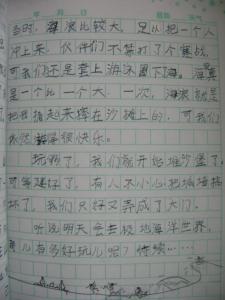 年 月 日 星期 天气
当时,海浪比较大,足以把一个人
冲上来,伙伴们不禁打了个寒战,
可我们还是套上游泳圈下海。海浪真
是一个比一个大,一次,海浪就是
把我抬起来摔在沙滩上的,可我们
依然很快乐。
玩够了,我们就开始堆沙堡了。
可等建好了,有人不小心把城墙搞
坏了,我们只好又弄成了大门。
听说明天会去极地海洋世界,
那儿有多好玩儿呢?待续……